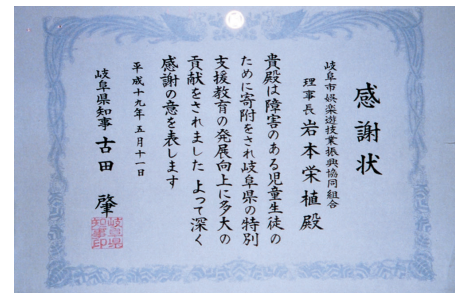 感謝状
岐阜市娯楽遊技業振興協同組合
理事長 岩本栄植殿
貴殿は障害のある児童生徒の
ために寄附をされ岐阜県の特別
支援教育の発展向上に多大の
貢献をされました よって深く
感謝の意を表します
平成十九年五月十一日
岐阜県知事 古田 肇
岐阜県
知事印